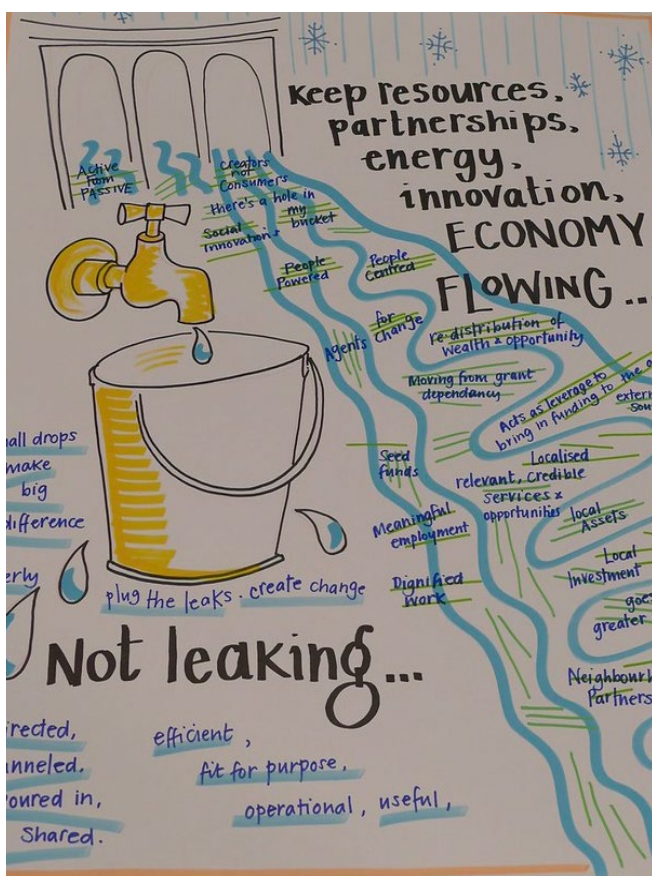 Keep resources,
partnerships,
energy,
innovation,
ECONOMY
FLOWING ...
Active
from
PASSIVE
Creators
not
Consumers
there's a hole in
my
bucket
Social
Innovation
People
Powered
People
Centred
Agents for change
re-distribution of
wealth & opportunity
Moving from grant
dependancy
Acts as leverage to
bring in funding to the
extern
Seed
funds
Localised
relevant, credible
services &
opportunities
local
Assets
Meaningful
employment
Local
Investment
Dignified
work
goes
greater
Neighbour
Partners
all drops
make
big
difference
erly
plug the leaks. create change
Not leaking...
rected,
nneled,
oured in,
Shared.
efficient,
fit for purpose,
operational, useful,